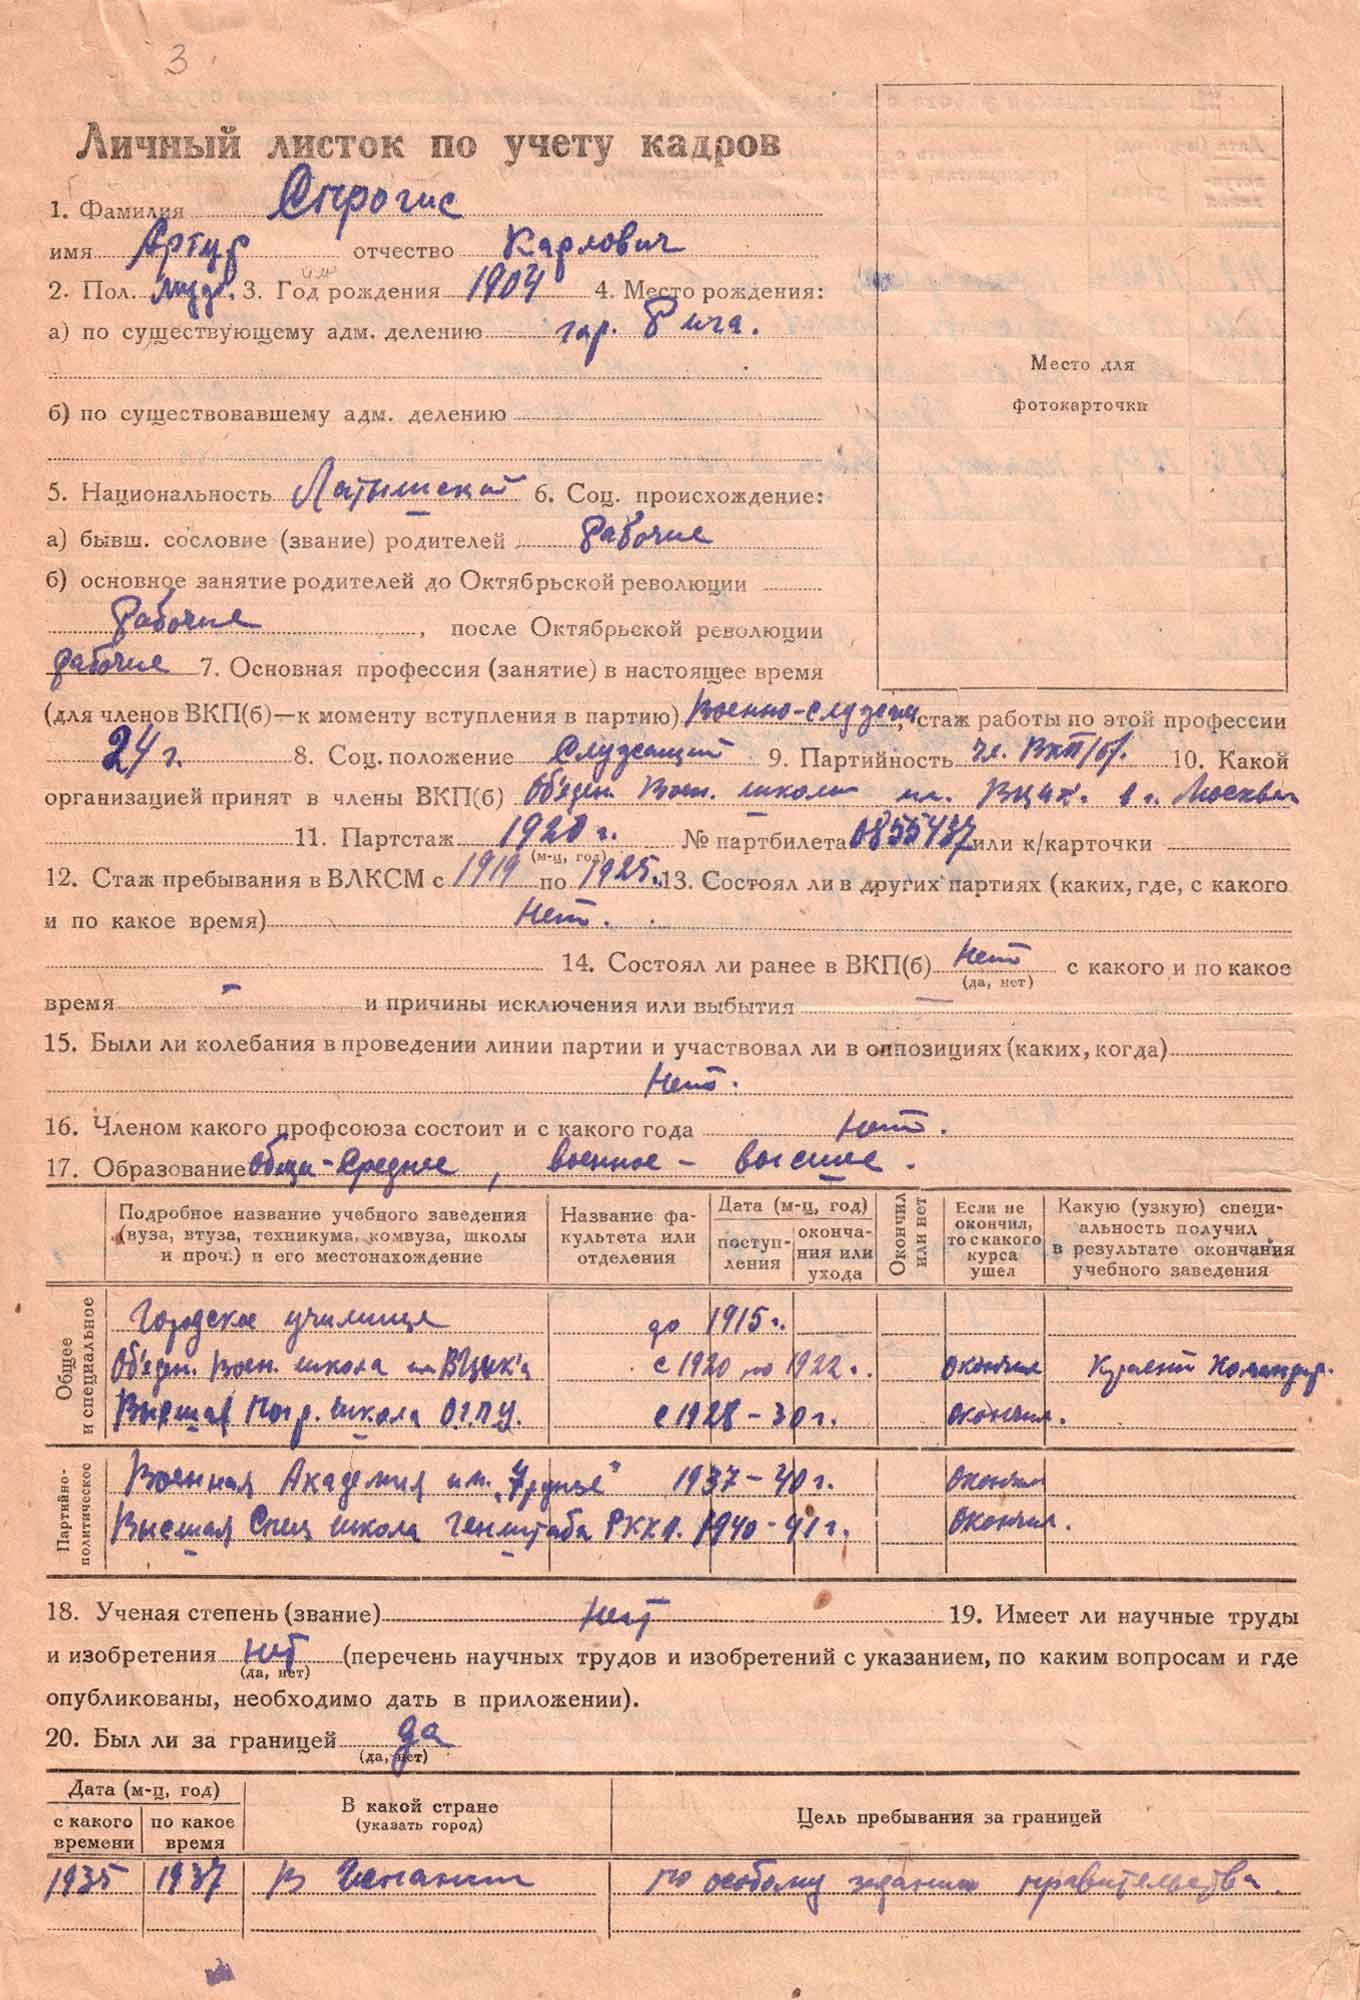 3
Личный листок по учету кадров
1. Фамилия Спрогис
имя Артур отчество Карлович
2. Пол. Мужс. 3. Год рождения 1904 4. Место рождения:
а) по существующему адм. делению гор. Рига.
б) по существовавшему адм. делению
Место для
фотокарточки
5. Национальность Латышской 6. Соц. происхождение:
а) бывш. сословие (звание) родителей Рабочие
б) основное занятие родителей до Октябрьской революции
Рабочие, после Октябрьской революции
рабочие 7. Основная профессия (занятие) в настоящее время
(для членов ВКП(б)—к моменту вступления в партию) Военно-служащ, стаж работы по этой профессии
24 г. 8. Соц. положение Служсащий 9. Партийность чл. ВКП/б/. 10. Какой
организацией принят в члены ВКП(б) Об'един. Воен. школы им. ВЦИК. в г. Москвы
11. Партстаж 1920 г. № партбилета 0855437 или к/карточки
(м-ц, год)
12. Стаж пребывания в ВЛКСМ с 1919 по 1925. 13. Состоял ли в других партиях (каких, где, с какого
и по какое время) Нет.
14. Состоял ли ранее в ВКП(б) Нет с какого и по какое
(да, нет)
время - и причины исключения или выбытия —
15. Были ли колебания в проведении линии партии и участвовал ли в оппозициях (каких, когда)
Нет.
16. Членом какого профсоюза состоит и с какого года Нет.
17. Образование общи-Среднее, военное - высшее.
Подробное название учебного заведения (вуза, втуза, техникума, комвуза, школы и проч.) и его местонахождение
Название факультета или отделения
Дата (м-ц, год)
поступления
окончания или ухода
Окончил или нет
Если не окончил, то с какого курса ушел
Какую (узкую) специальность получил в результате окончания учебного заведения
Общее и специальное
Городское училище до 1915 г.
Об'един. Воен. школа им ВЦИК'а с 1920 по 1922 г. окончил Красный Командир.
Высшая Погр. школа ОГПУ. с 1928 - 30 г. окончил.
Партийно-политическое
Военная Академия им. „Фрунзе" 1937 - 40 г. окончил
Высшая Спец школа Генштаба РККА. 1940 - 41 г. окончил.
18. Ученая степень (звание) нет 19. Имеет ли научные труды
и изобретения нет (перечень научных трудов и изобретений с указанием, по каким вопросам и где
(да, нет)
опубликованы, необходимо дать в приложении).
20. Был ли за границей да
(да, нет)
Дата (м-ц, год)
с какого времени
по какое время
В какой стране
(указать город)
Цель пребывания за границей
1935 1937 В Испании по особому задании правительства.